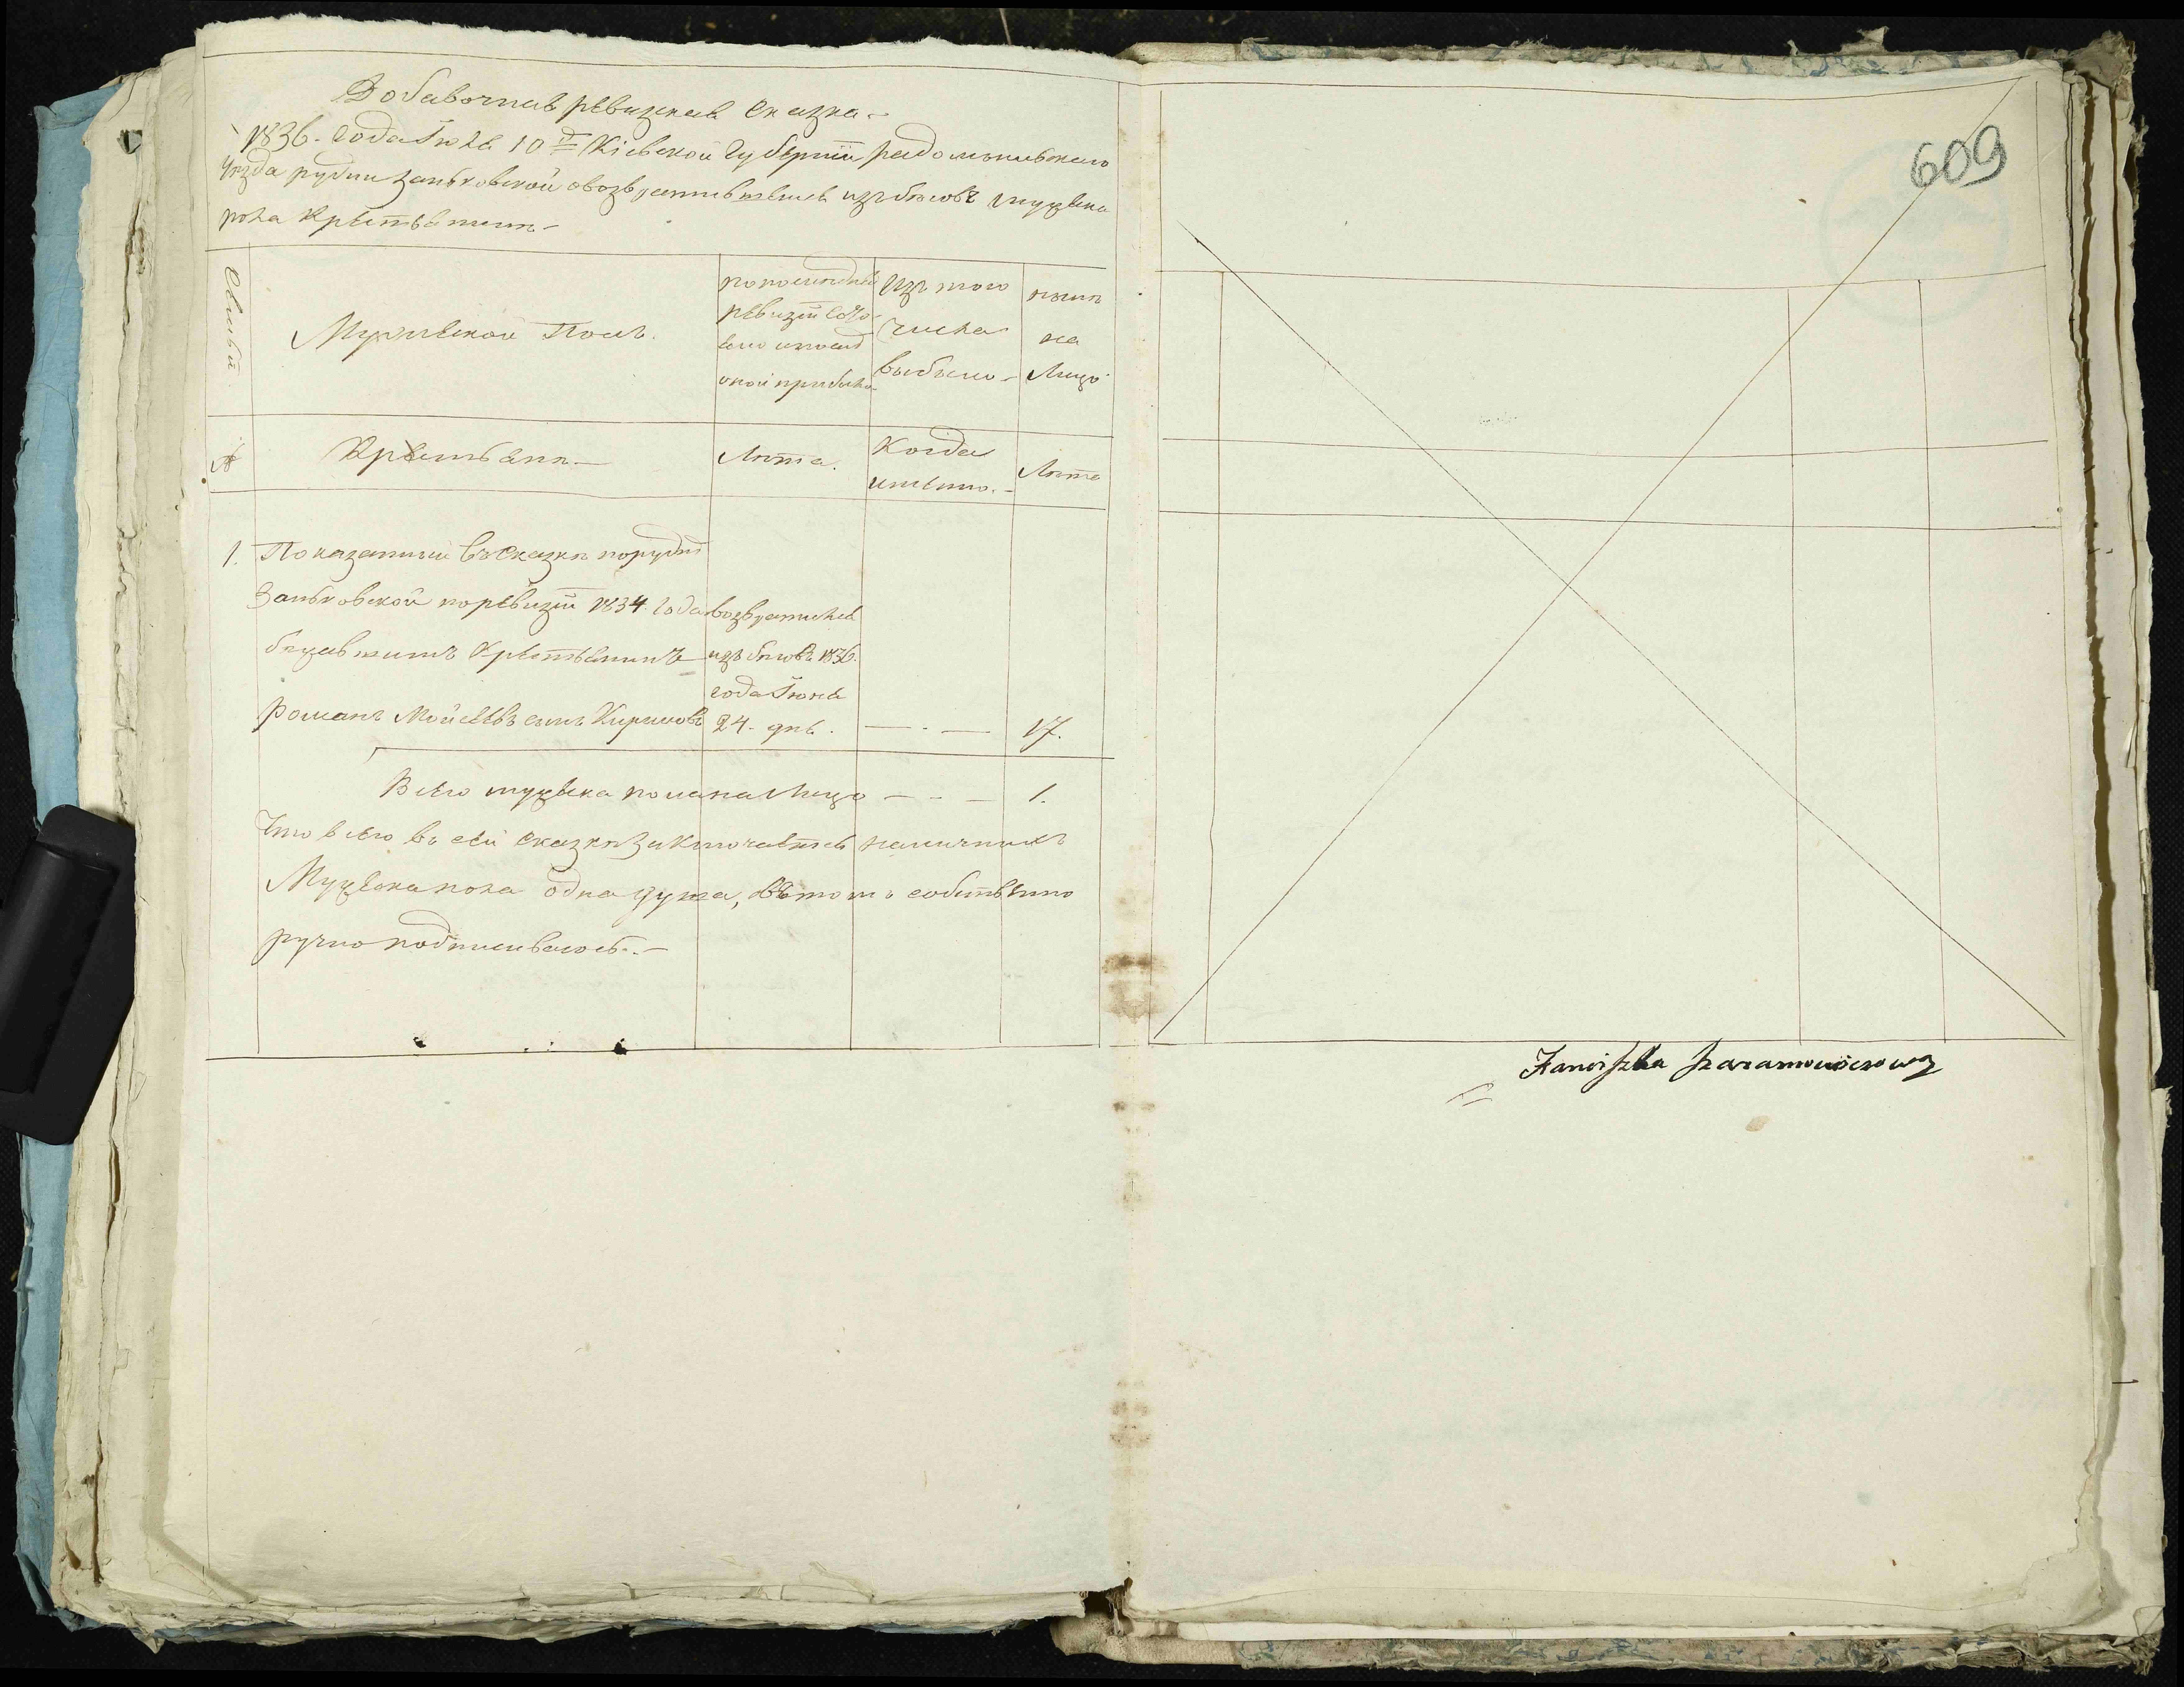 Добавочная ревизкая сказка.-
1836. года Іюля 10 д Кіевской Губерніи радомысльского
Уезда рудни Заньковской овозвратившемся изъ бѣговъ мужеска
пола Крестьянине.-
Семьи
Мужеской Полъ.
попоследней
ревизіи состо-
яло ипосле
оной прибыло
Изъ того
числа
выбыло.-
нынѣ
на
Лицо
№
Крестьяне.-
Лѣта.
Когда
именно.-
Лѣта
1. Показанный въ сказкѣ порудне
Заньковской поревизіи 1834. года
бежавшимъ Крестьянинъ
романъ Мойсеевъ сынъ
возвратился
изъ бѣговъ 1836.
года Іюня
24. дня.
— . —
17.
Всего мужеска пола на лицо - - - 1.
Что всего въ сей сказкѣ заключается наличныхъ
Мужеска пола одна душа, вътомъ собственно
ручно подписываюсь.-
609